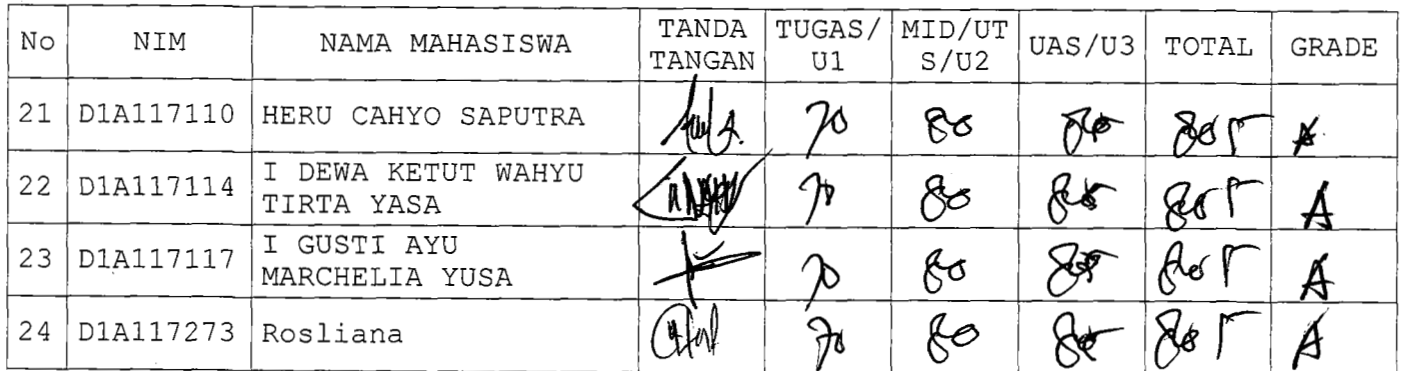 No NIM NAMA MAHASISWA TANDA TANGAN TUGAS/U1 MID/UTS/U2 UAS/U3 TOTAL GRADE
21 D1A117110 HERU CAHYO SAPUTRA 70 80 80 5 A
22 D1A117114 I DEWA KETUT WAHYU TIRTA YASA 70 80 80 5 A
23 D1A117117 I GUSTI AYU MARCHELIA YUSA 70 80 80 5 A
24 D1A117273 Rosliana 70 80 80 5 A